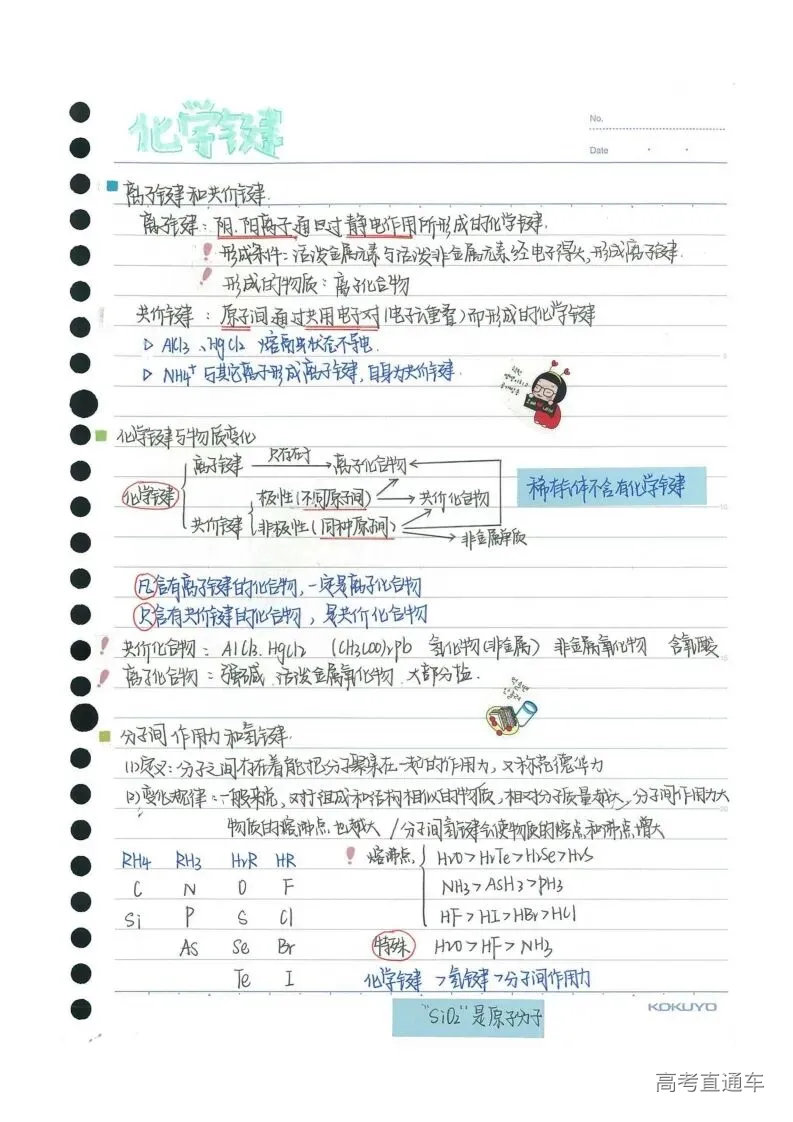 化学键
No.
Date
离子键和共价键.
离子键：阴.阳离子通过静电作用所形成的化学键.
形成条件：活泼金属元素与活泼非金属元素经电子得失,形成离子键.
形成的物质：离子化合物
共价键：原子间通过共用电子对(电子云重叠)而形成的化学键
▷ AlCl3、HgCl2 熔融状态不导电.
▷ NH4+与其它离子形成离子键,自身为共价键.
化学键与物质变化
离子键 只存在于 离子化合物
稀有气体不含有化学键
化学键 极性(不同原子间) 共价化合物
共价键 非极性(同种原子间)
非金属单质
凡含有离子键的化合物,一定是离子化合物
只含有共价键的化合物,是共价化合物
共价化合物：AlCl3.HgCl2 (CH3COO)2Pb 氢化物(非金属) 非金属氧化物 含氧酸
离子化合物：强碱 活泼金属氧化物 大部分盐.
分子间作用力和氢键.
(1)定义：分子之间存在着能把分子聚集在一起的作用力,又称范德华力
(2)变化规律：一般来说,对于组成和结构相似的物质,相对分子质量越大,分子间作用力大
物质的熔沸点也越大 /分子间氢键会使物质的熔点和沸点增大
RH4 RH3 H2R HR 熔沸点 H2O>H2Te>H2Se>H2S
C N O F NH3>AsH3>PH3
Si P S Cl HF>HI>HBr>HCl
As Se Br 特殊 H2O>HF>NH3
Te I 化学键>氢键>分子间作用力
"SiO2"是原子分子
KOKUYO
高考直通车